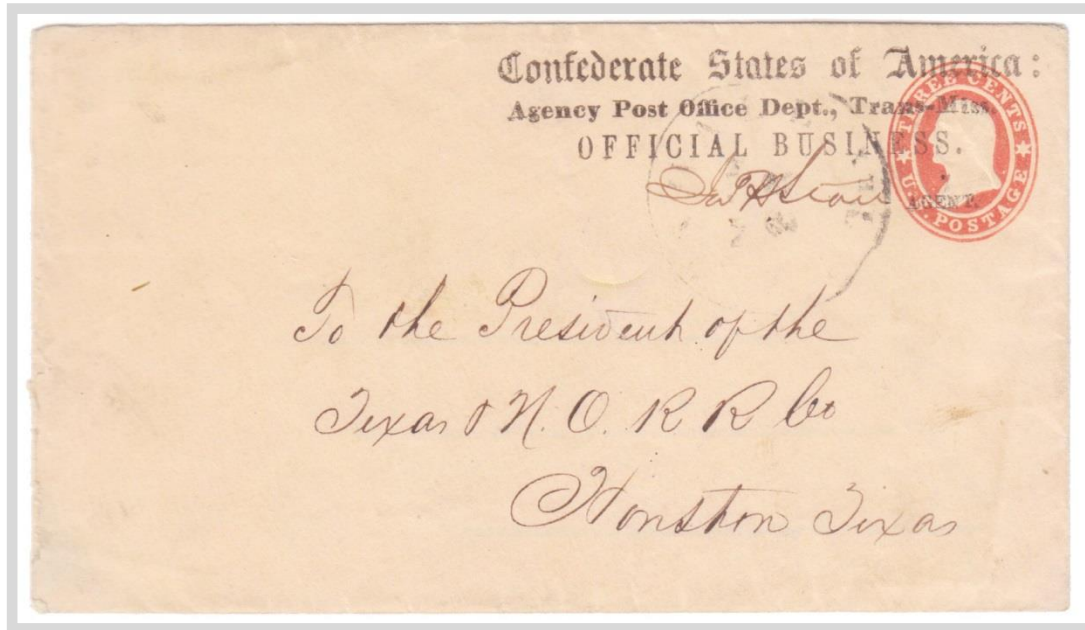 Confederate States of America:
Agency Post Office Dept., Trans-Miss.
OFFICIAL BUSINESS.
THREE CENTS
U.S. POSTAGE
AGENT.
To the President of the
Texas & N. O. R R Co
Houston Texas